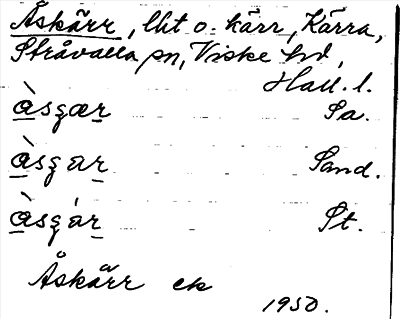 Åskärr, lht o. kärr, Kärra,
Stråvalla sn, Viske hd,
Hall. l.
àsgær Sa.
àsgar Sand.
àsgár St.
Åskärr ek
1950.